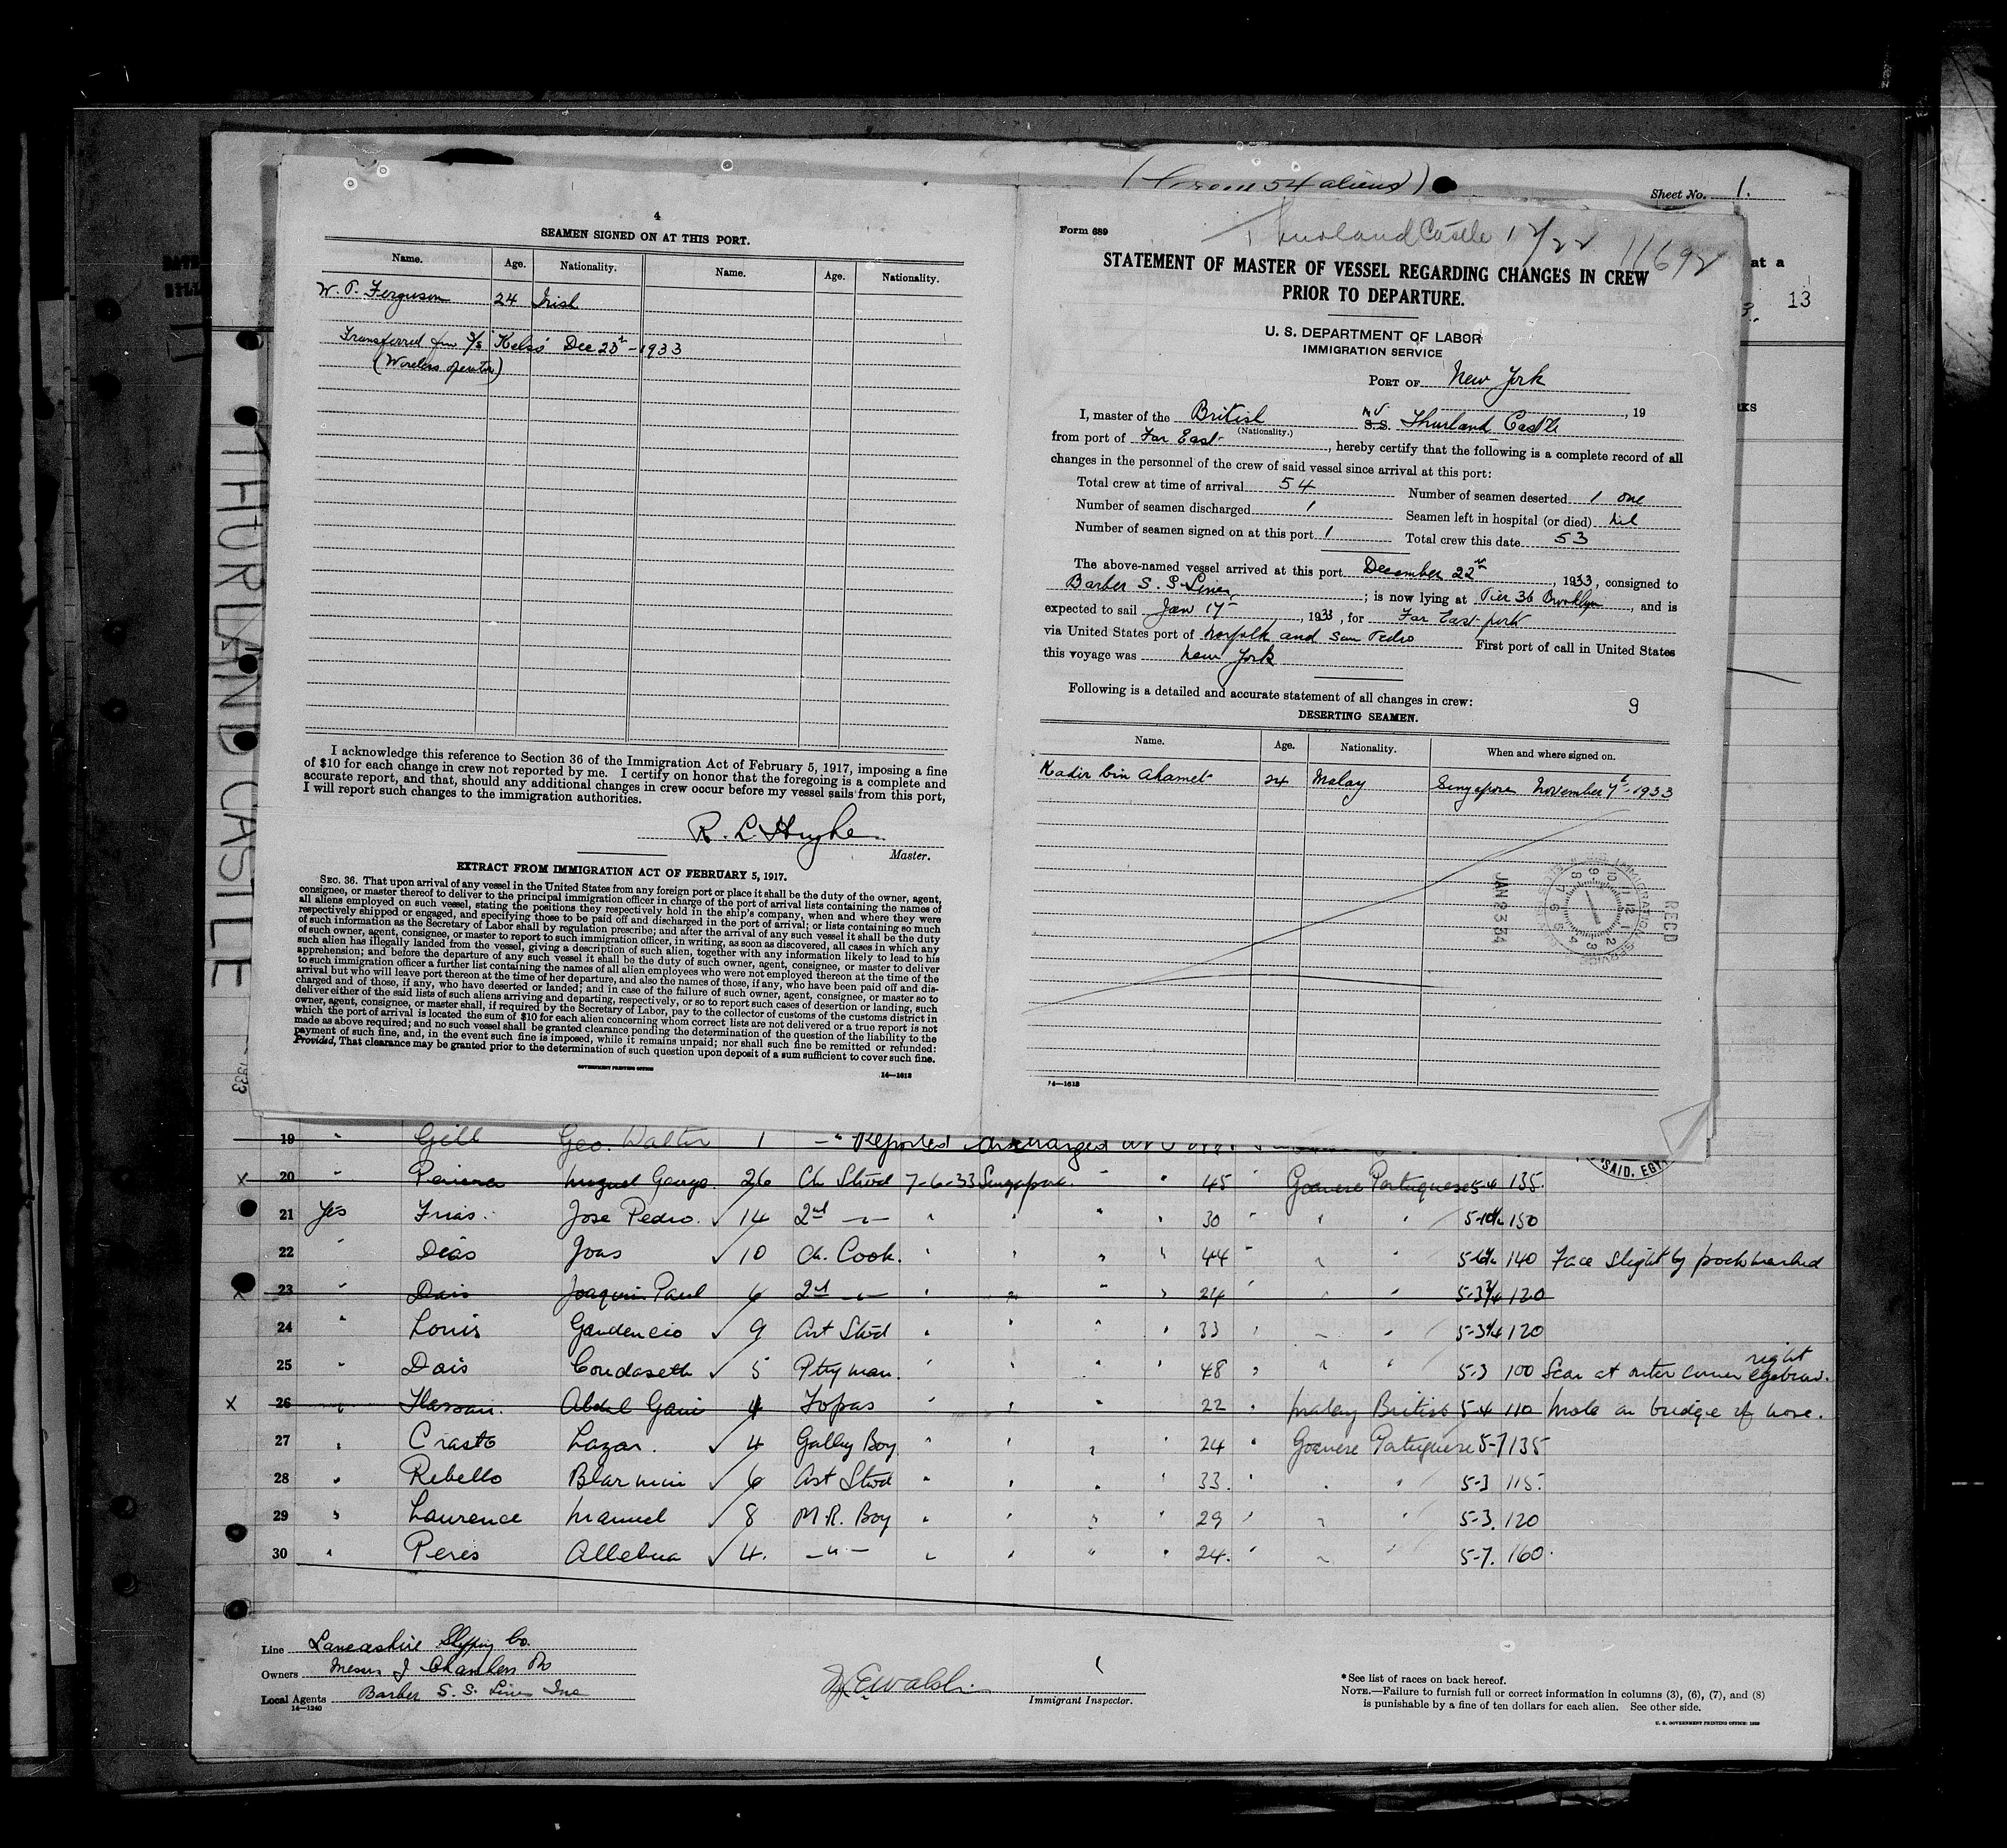 (Crew 54 aliens)
Sheet No. 1.
4
SEAMEN SIGNED ON AT THIS PORT.
Name. Age. Nationality. Name. Age. Nationality.
W. T. Ferguson 24 Irish
Transferred from S/S Kelso Dec 23rd - 1933
(Wireless operator)
I acknowledge this reference to Section 36 of the Immigration Act of February 5, 1917, imposing a fine
of $10 for each change in crew not reported by me. I certify on honor that the foregoing is a complete and
accurate report, and that, should any additional changes in crew occur before my vessel sails from this port,
I will report such changes to the immigration authorities.
R. L. Hughe
Master.
EXTRACT FROM IMMIGRATION ACT OF FEBRUARY 5, 1917.
SEC. 36. That upon arrival of any vessel in the United States from any foreign port or place it shall be the duty of the owner, agent,
consignee, or master thereof to deliver to the principal immigration officer in charge of the port of arrival lists containing the names of
all aliens employed on such vessel, stating the positions they respectively hold in the ship's company, when and where they were
respectively shipped or engaged, and specifying those to be paid off and discharged in the port of arrival; or lists containing so much
of such information as the Secretary of Labor shall by regulation prescribe; and after the arrival of any such vessel it shall be the duty
of such owner, agent, consignee, or master to report to such immigration officer, in writing, as soon as discovered, all cases in which any
such alien has illegally landed from the vessel, giving a description of such alien, together with any information likely to lead to his
apprehension; and before the departure of any such vessel it shall be the duty of such owner, agent, consignee, or master to deliver
to such immigration officer a further list containing the names of all alien employees who were not employed thereon at the time of the
arrival but who will leave port thereon at the time of her departure, and also the names of those, if any, who have been paid off and dis-
charged and of those, if any, who have deserted or landed; and in case of the failure of such owner, agent, consignee, or master so to
deliver either of the said lists of such aliens arriving and departing, respectively, or so to report such cases of desertion or landing, such
owner, agent, consignee, or master shall, if required by the Secretary of Labor, pay to the collector of customs of the customs district in
which the port of arrival is located the sum of $10 for each alien concerning whom correct lists are not delivered or a true report is not
made as above required; and no such vessel shall be granted clearance pending the determination of the question of the liability to the
payment of such fine, and, in the event such fine is imposed, while it remains unpaid; nor shall such fine be remitted or refunded:
Provided, That clearance may be granted prior to the determination of such question upon deposit of a sum sufficient to cover such fine.
GOVERNMENT PRINTING OFFICE
14—1613
Form 689
Thurland Castle 12/22 11692
STATEMENT OF MASTER OF VESSEL REGARDING CHANGES IN CREW
PRIOR TO DEPARTURE.
U. S. DEPARTMENT OF LABOR
IMMIGRATION SERVICE
PORT OF New York
, 19
I, master of the British M.V. S.S. Thurland Castle
(Nationality.)
from port of Far East, hereby certify that the following is a complete record of all
changes in the personnel of the crew of said vessel since arrival at this port:
Total crew at time of arrival 54 Number of seamen deserted 1 one
Number of seamen discharged 1 Seamen left in hospital (or died) nil
Number of seamen signed on at this port 1 Total crew this date 53
The above-named vessel arrived at this port December 22nd, 1933, consigned to
Barber S. S. Lines; is now lying at Pier 36 Brooklyn, and is
expected to sail Jan 1st, 1933, for Far East port
via United States port of Norfolk and San Pedro First port of call in United States
this voyage was New York
Following is a detailed and accurate statement of all changes in crew:
9
DESERTING SEAMEN.
Name. Age. Nationality. When and where signed on.
Kadir bin Ahamet 24 Malay Singapore November 7th - 1933
RECD
JAN 2 3 34
IMMIGRATION SERVICE
14—1613
at a
13
3.
RKS
THURLAND CASTLE
1933
19 " Gill Geo. Walter 1 -"- Reported discharged
SAID. EGY
x 20 " Pereira Miguel George. 26 Ch Stwd 7-6-33 Singapore. " " 45 " Goanese Portuguese 5-4 135.
21 Yes Frias. Jose Pedro. ✓ 14 2nd -"- " " " " 30 " " " 150
22 " Dias Joas ✓ 10 Ch. Cook. " " " " 44 " " " 140 Face slightly pockmarked
x 23 " Dais Joaquim Paul 6 2nd -"- " " " " 24 " " " 5-3¾ 120
24 " Louis Gaudencio ✓ 9 Ast Stwd " " " " 33 " " " 5-3¾ 120
25 " Dais Coudaseth ✓ 5 Ptry man. " " " " 48 " " " 5-3 100 Scar at outer corner right eyebrow.
x 26 " Hassan. Abdul Gani 4 Topas " " 22 " Malay British 5-4 110 Mole on bridge of nose.
27 " Crasto Lazar. ✓ 4 Galley Boy " " " " 24 " Goanese Portuguese 5-7 135
28 " Rebello Blarmin ✓ 6 Ast Stwd " " " " 33. " " " 5-3 115.
29 " Laurence Manuel ✓ 8 M.R. Boy " " " " 29 " " " 5-3. 120
30 " Peres Allebua ✓ 4. -"- " " " " 24. " " " 5-7. 160.
Line Lancashire Shipping Co.
Owners Messrs J Chambers
Local Agents Barber S. S. Lines Inc
14—1240
Walsh
Immigrant Inspector.
* See list of races on back hereof.
NOTE.—Failure to furnish full or correct information in columns (3), (6), (7), and (8)
is punishable by a fine of ten dollars for each alien. See other side.
U. S. GOVERNMENT PRINTING OFFICE: 1929